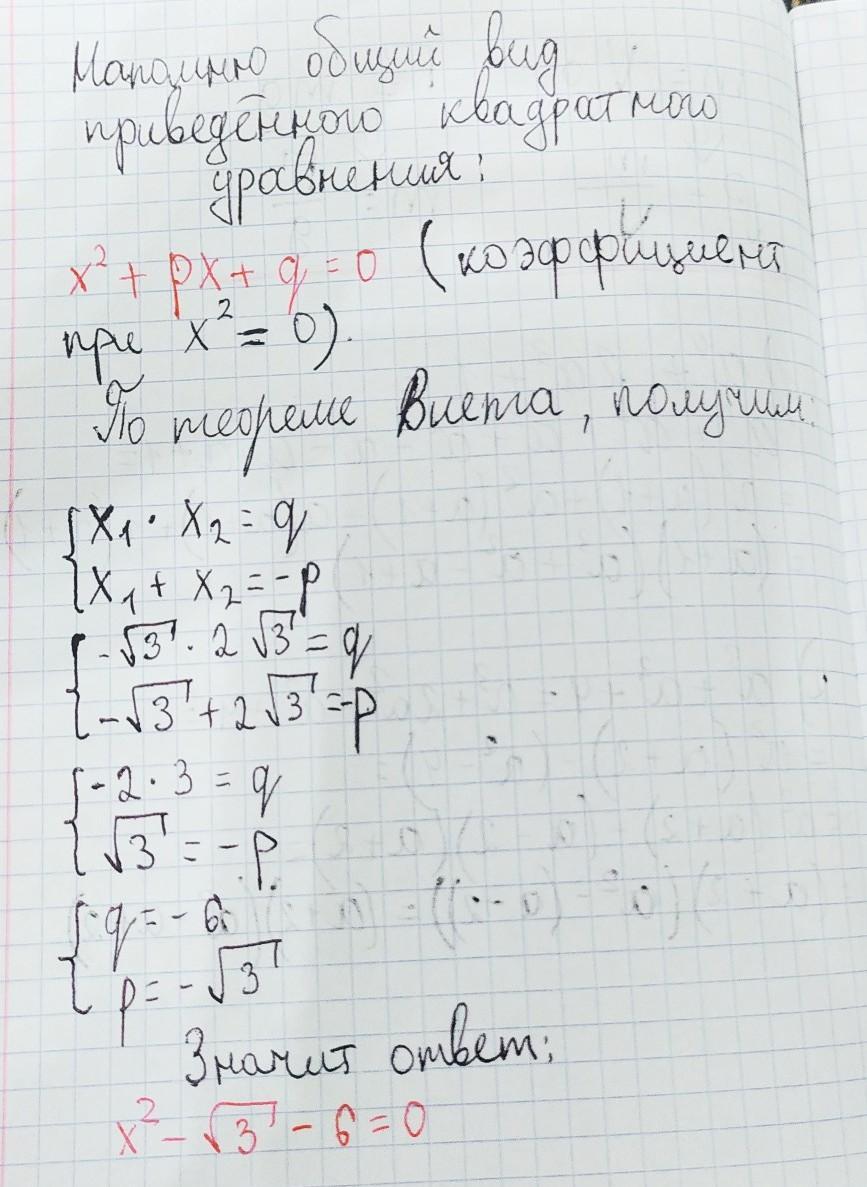 Напомню общий вид
приведённого квадратного
уравнения:
x² + px + q = 0 (коэффициент
при x² = 0).
По теореме Виета, получим:
x₁ · x₂ = q
x₁ + x₂ = -p
-√3 · 2√3 = q
-√3 + 2√3 = -p
-2 · 3 = q
√3 = -p
q = -6
p = -√3
Значит ответ:
x² - √3 - 6 = 0